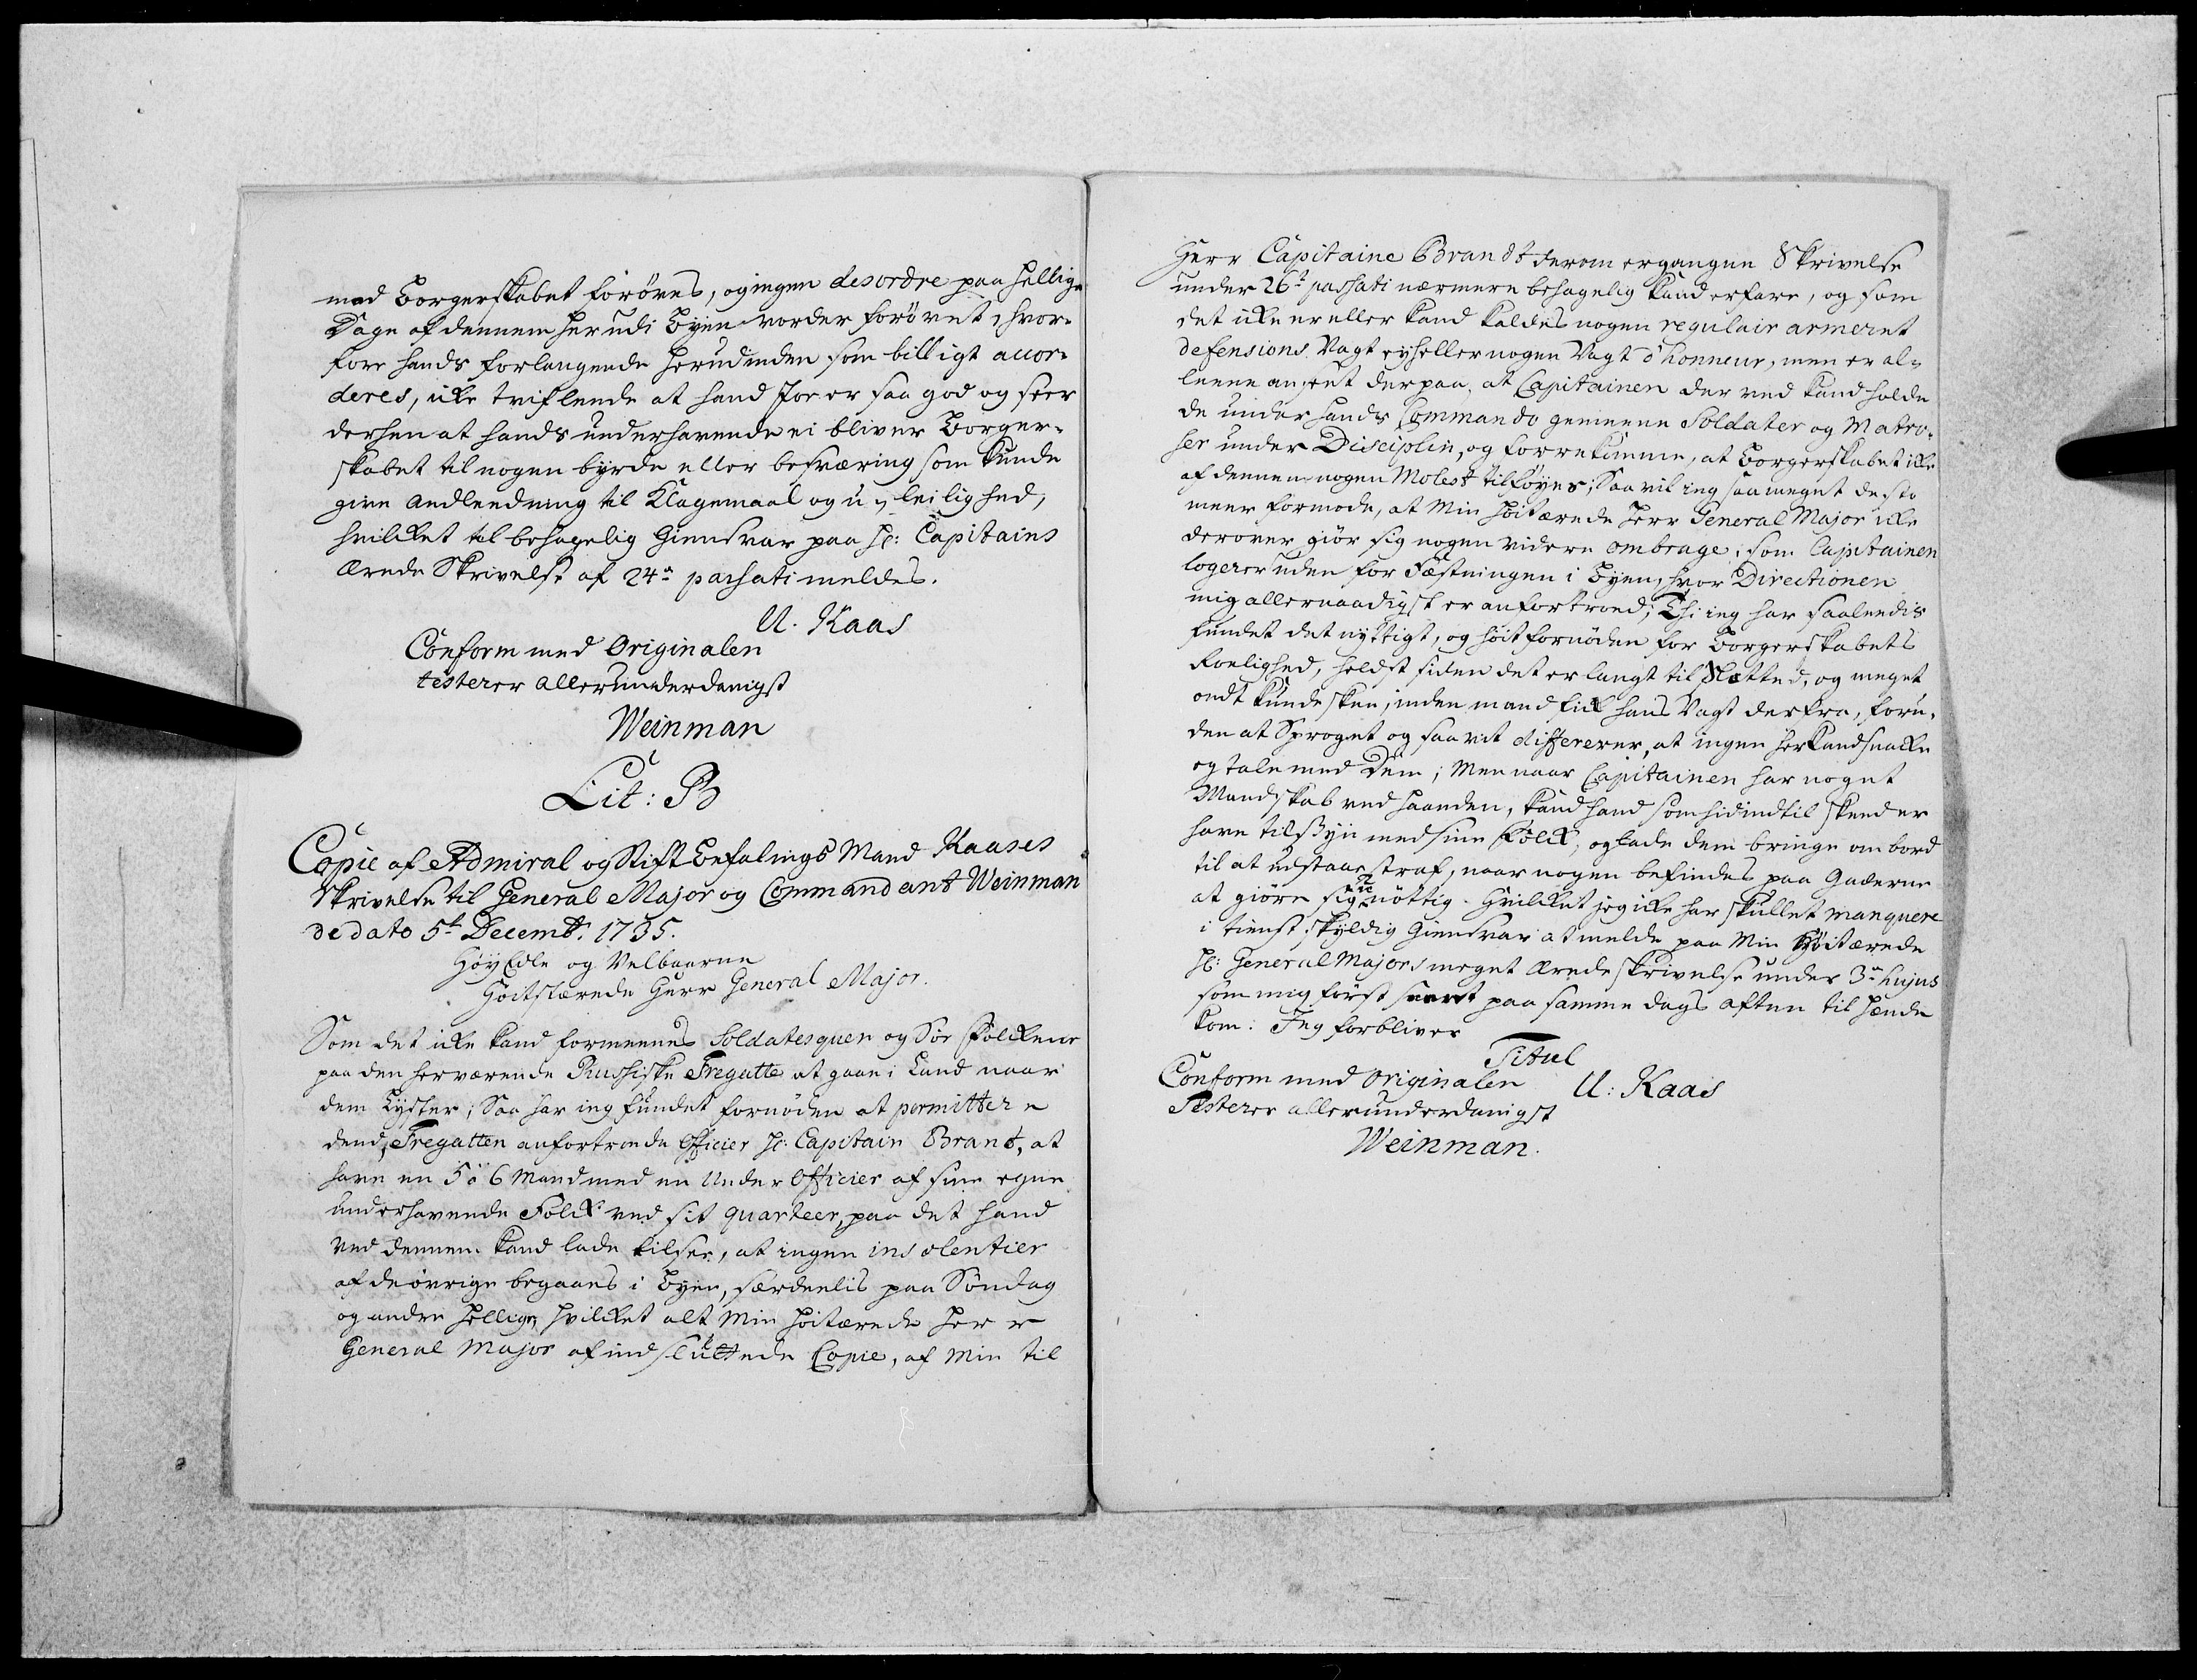 med Borgerskabet forøves, og ingen desordre paa hellige
Dage af dennem her udi Byen vorder forøvet, hvor-
fore hands forlangende herudinden som billigt accor-
deres, icke tviflende at hand jo er saa god og seer
derhen at hands underhavende ei bliver Borger-
skabet til nogen byrde eller besværing som kunde
give andleedning til Klagemaal og u-leilighed,
hvilcket til behagelig Giensvar paa Hr: Capitains
ærede Skrivelse af 24de passati meldes.
U. Kaas
Conform med Originalen
testerer allerunderdanigst
Weinman
Lit: B
Copie af Admiral og Stift Befalings Mand Kaases
Skrivelse til General Major og Commandant Weinman
de dato 5t Decembr. 1735.
Høy Edle og Velbaarne
Høitstærede Herr General Major.
Som det icke kand formeenes Soldatesquen og Søe Folckene
paa den herværende Russiske Fregatte at gaae i Land naar
dem Lyster; Saa har ieg fundet fornøden at permittere
dend Fregatten anfortroede Officier Hr: Capitain Brant, at
have en 5 à 6 Mand med en Under Officier af sine egne
underhavende Folck ved sit quarteer, paa det hand
ved dennem kand lade tilsee, at ingen insolentier
af de øvrige begaaes i Byen, særdeelis paa Søndag
og andre hellige, hvilcket alt Min høitærede Herr
General Major af indsluttede Copie, af Min til
Herr Capitaine Brandt derom ergangne Skrivelse
under 26t passati nærmere behagelig kand erfare, og som
det icke er eller kand kaldes nogen regulair armeret
defensions Vagt ey heller nogen Vagt d'honneur, men er al-
leene anseet derpaa, at Capitainen der ved kand holde
de under hands Commando gemeene Soldater og Matro-
ser under Disciplin, og forrekomme, at Borgerskabet icke
af dennem nogen Molest tilføyes; Saa vil ieg saa meget desto
meer formode, at Min høitærede Herr General Major icke
derover giør sig nogen videre ombrage, som Capitainen
logerer uden for Fæstningen i Byen, hvor Directionen
mig allernaadigst er anfortroed; Thi ieg har saaleedis
fundet det nyttigt, og høit fornøden for Borgerskabets
Roelighed, heldst siden det er langt til Slotted, og meget
ondt kunde skee, inden mand fick hans Vagt derfra, foru-
den at Sproget og saa vit differerer, at ingen her kand snacke
og tale med Dem; Men naar Capitainen har noget
Mandskab ved haanden, kand hand som hidindtil skeed er
have tilsyn med sine Folck, og lade dem bringe om bord
til at udstaae straf, naar nogen befindes paa Gaderne
at giøre sig unøttig. Hvilcket jeg icke har skullet manquere
i tienst skyldig Giensvar at melde paa Min Høitærede
Hr: General Majors meget ærede skrivelse under 3de hujus
som mig først seent paa samme dags aften til hænde
kom: Jeg forbliver
Titul
Conform med Originalen
U: Kaas
Testerer allerunderdanigst
Weinman.